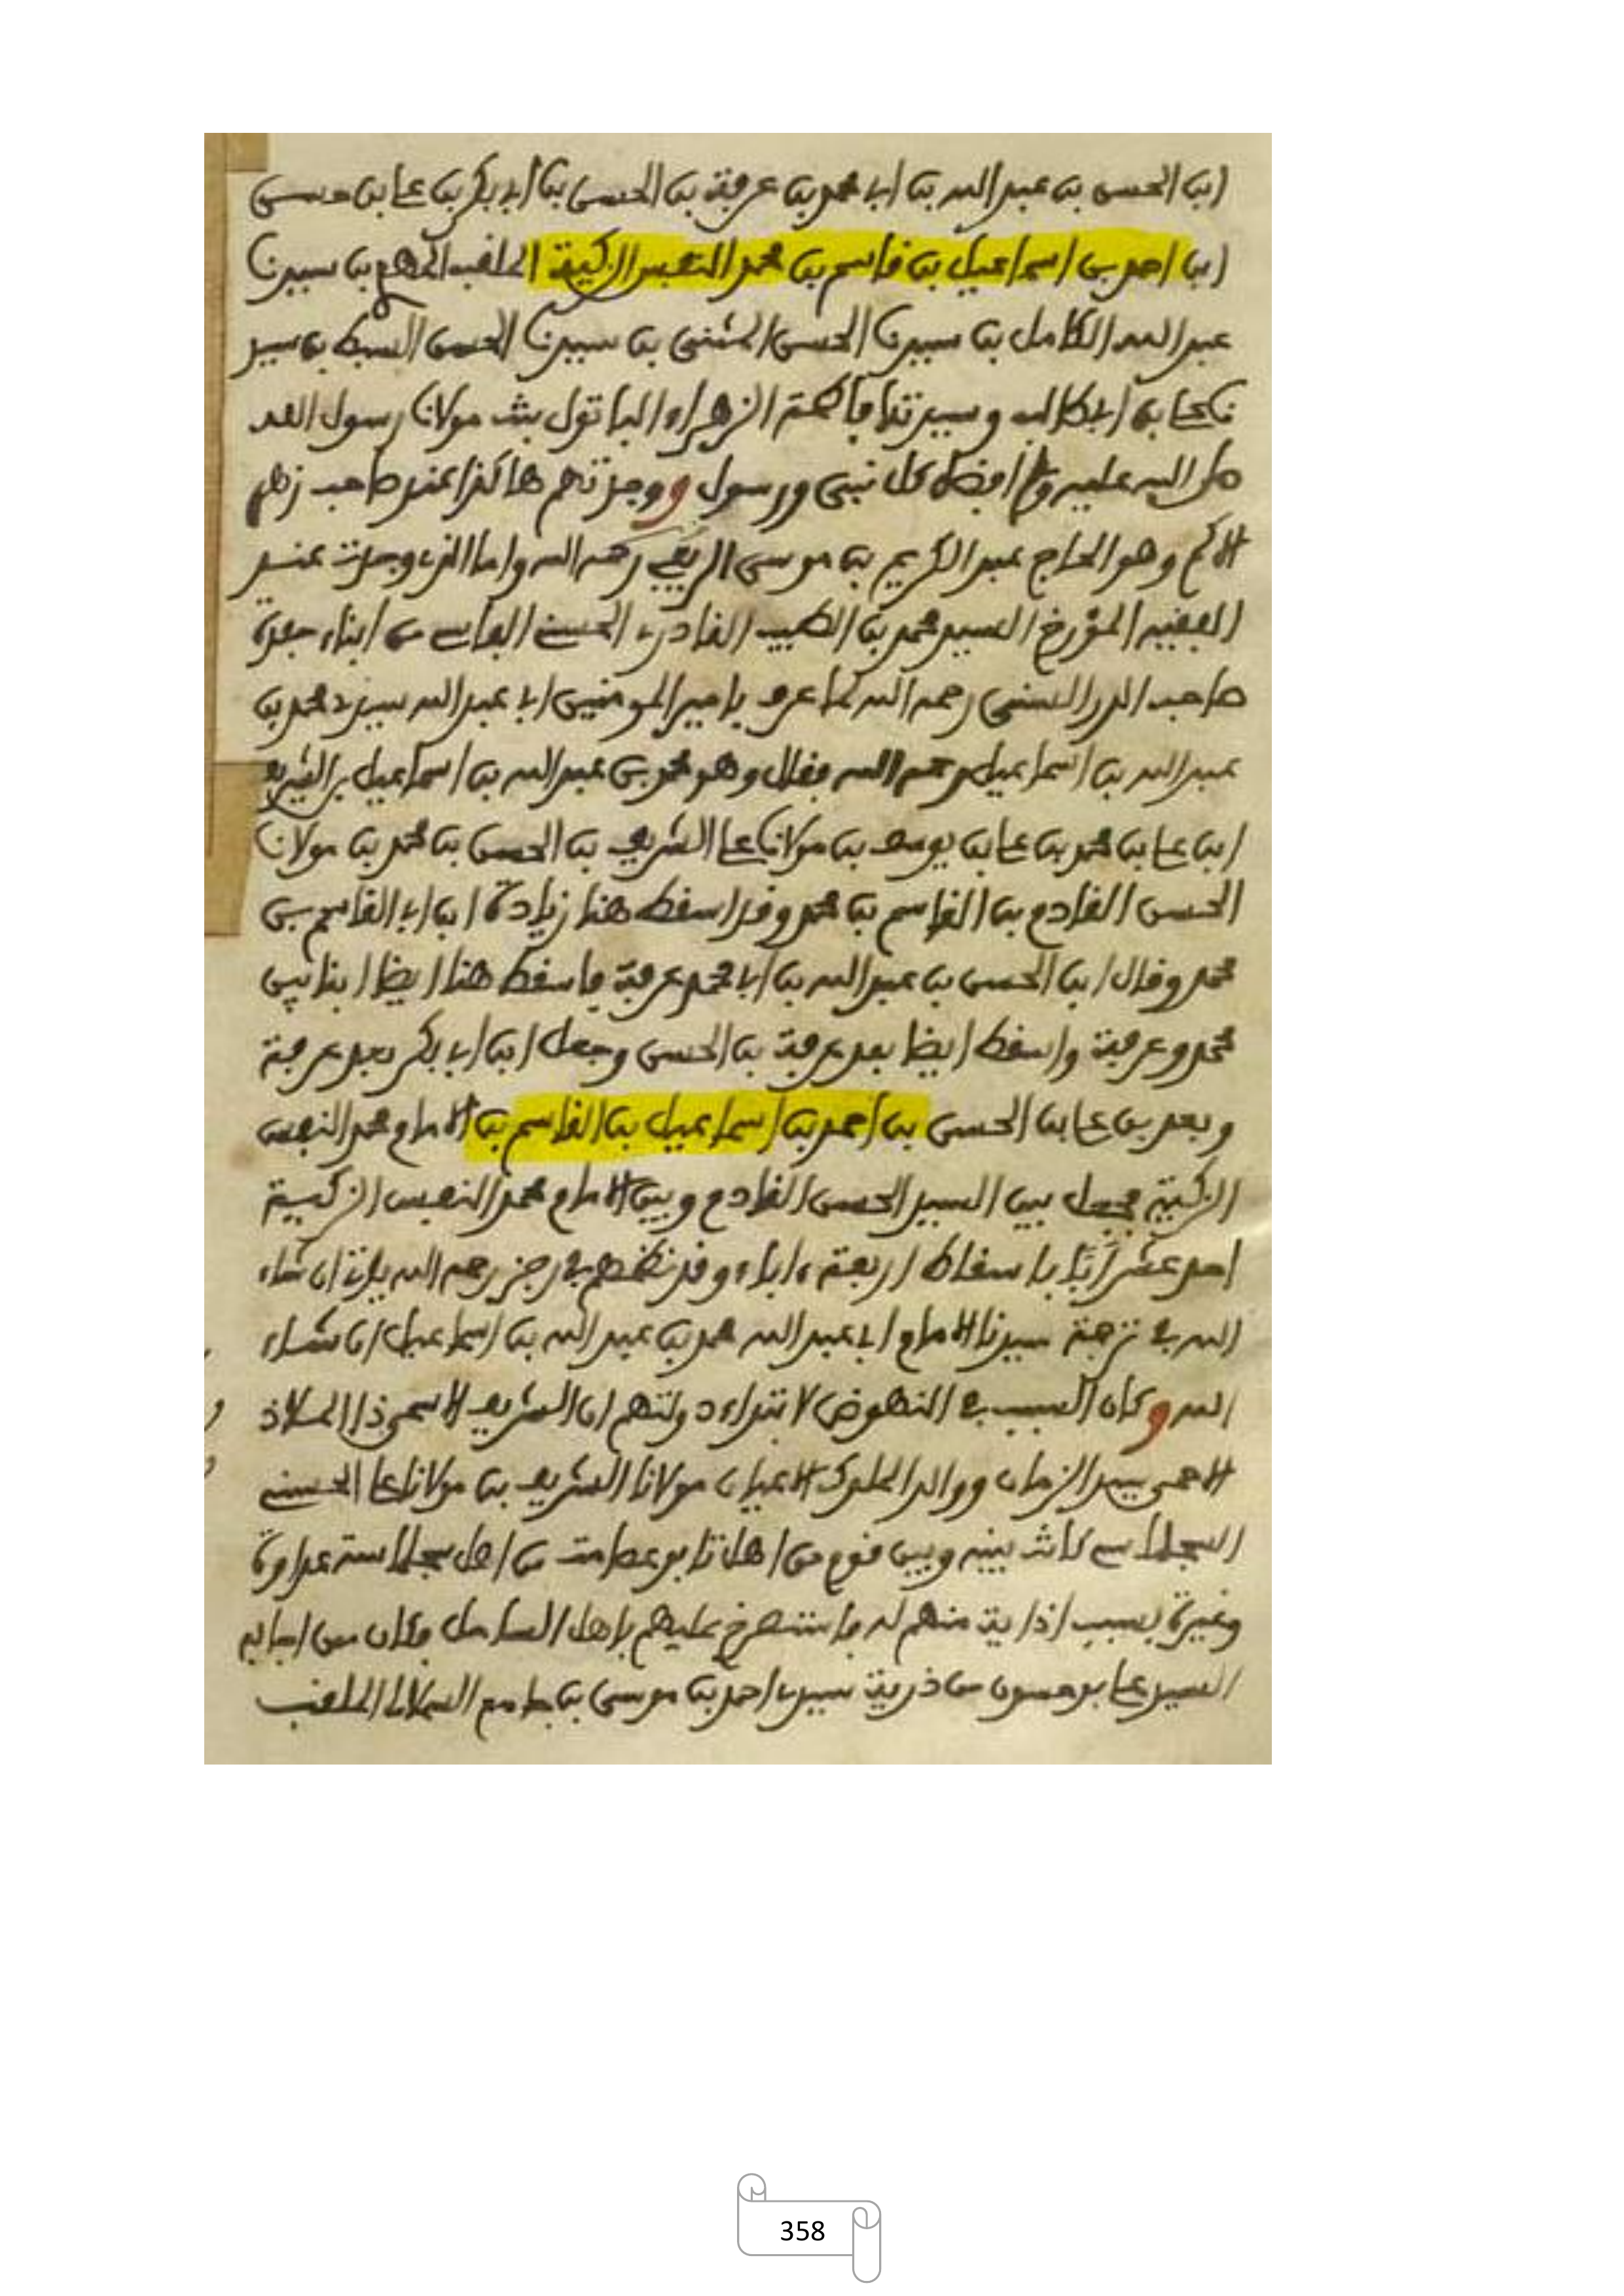 ابن الحسن بن عبد الله بن ابي محمد بن عرفة بن الحسن بن أبي بكر بن علي بن حسن
ابن احمد بن اسماعيل بن قاسم بن محمد النفس الزكية الملقب المهدي بن سيدنا
عبد الله الكامل بن سيدنا الحسن المثنى بن سيدنا الحسن السبط بن سيد
نا علي بن ابي طالب وسيدتنا فاطمة الزهراء الباتول بنت مولانا رسول الله
صلى الله عليه وعلى افضل كل نبي ورسول ووجدتهم هاكذا عند صاحب زهر
الاكم وهو الحاج عبد الكريم بن موسى الريفي رحمه الله واما الذي وجدت عند
الفقيه المؤرخ السيد محمد بن الطيب القادري الحسني الفاسي من ابناء
صاحب الدرر السني رحمه الله لما عرف بامير المومنين ابي عبد الله سيدي محمد بن
عبد الله بن اسماعيل رحمه الله فقال وهو محمد بن عبد الله بن اسماعيل بن الشريف
ابن علي بن محمد بن علي بن يوسف بن مولانا علي الشريف بن الحسن بن محمد بن مولانا
الحسن القادم بن القاسم بن محمد وقد اسقط هنا زيادة ابن ابي القاسم بن
محمد وقال ابن الحسن بن عبد الله بن ابي محمد عرفة فاسقط هنا ايضا ابنا بين
محمد وعرفة واسقط ايضا بعد عرفة بن الحسن وجعل ابن ابي بكر بعد عرفة
وبعد بن علي بن الحسن بن احمد بن اسماعيل بن القاسم بن الامام محمد النفس
الزكية فجعل بين السيد الحسن القادم وبين الامام محمد النفس الزكية
احد عشر أبًا باسقاط اربعة ءاباء وقد نظمهم في رجز رحمه الله ياتي ان شاء
الله في ترجمة سيدنا الامام ابي عبد الله محمد بن عبد الله بن اسماعيل ان شاء
الله وكان السبب في النهوض لابتداء دولتهم ان الشريف الاسمى ذا الملاذ
الاحمى سيد الزمان ووالد الملوك الاعيان مولانا الشريف بن مولانا علي الحسني
السجلماسي كانت بينه وبين قوم من اهل تابوعصامت من اهل سجلماسة عداوة
وغيرة بسبب اذاية منهم له فاستصرخ عليهم باهل الساحل فكان ممن اجابه
السيد علي بوحسون من ذرية سيدي احمد بن موسى بن السملالي الملقب
358